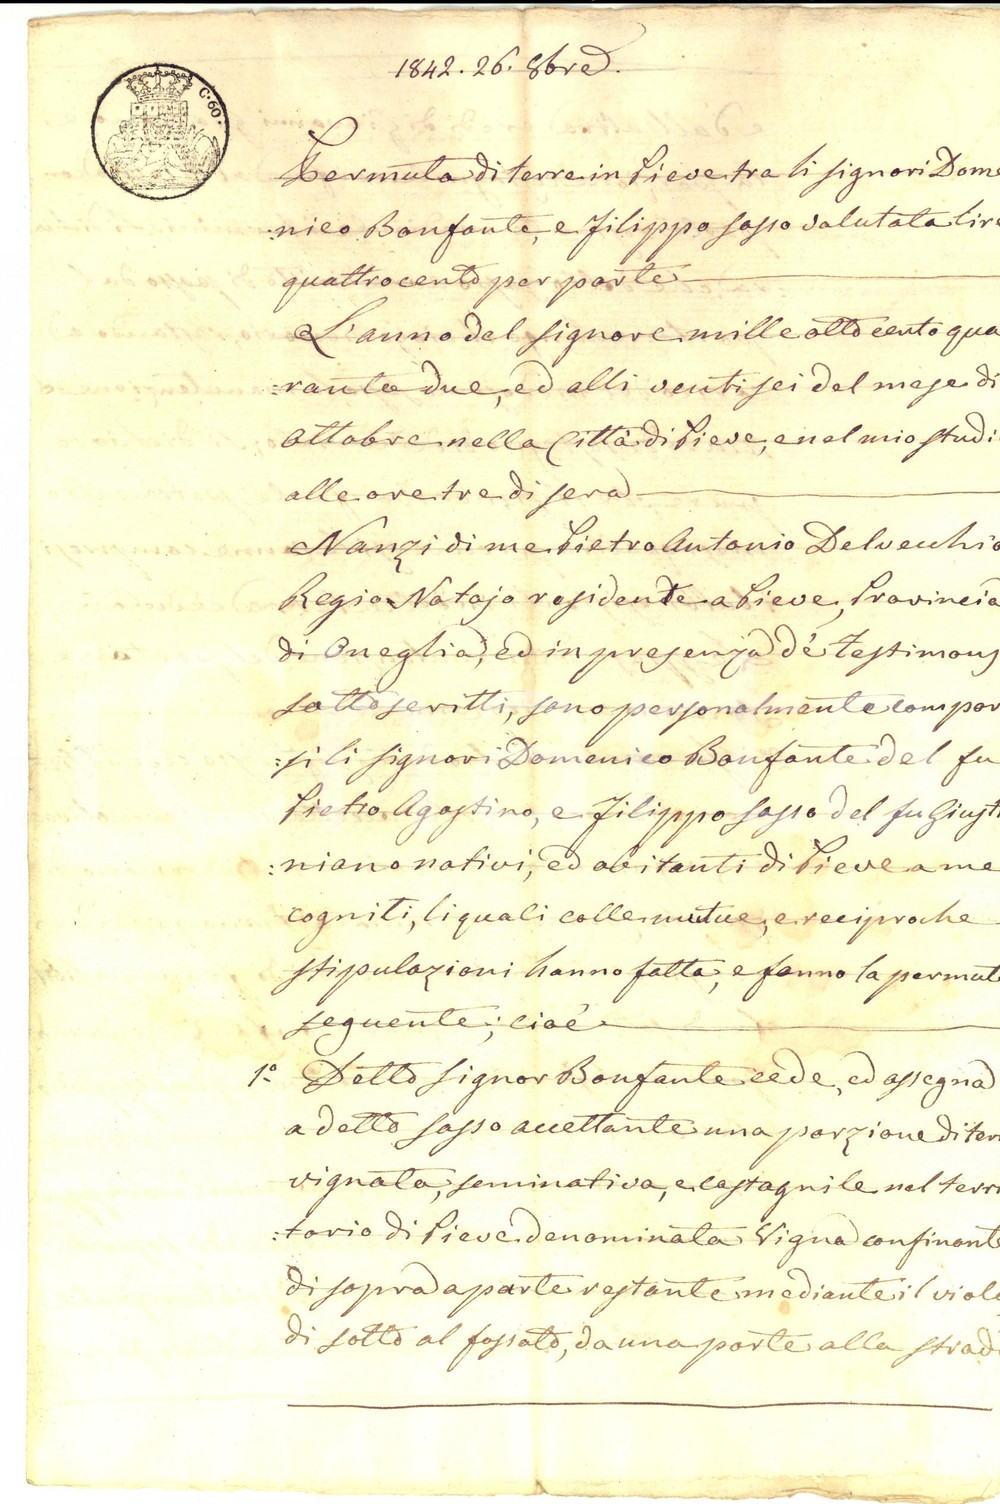 1842. 26. 8bre.
C. 60.
Permuta di terre in Pieve tra li signori Dome
:nico Bonfante, e Filippo Sasso valutata lire
quattrocento per parte
L'anno del Signore mille otto cento qua
:ranta due, ed alli venti sei del mese di
Ottobre nella Città di Pieve, e nel mio studi
alle ore tre di sera
Nanzi di me Pietro Antonio Delvecchio
Regio Notajo residente a Pieve, Provincia
di Oneglia, ed in presenza de' testimonj
sottoscritti, sono personalmente compar
:si li signori Domenico Bonfante del fu
Pietro Agostino, e Filippo Sasso del fu Giusti
:niano nativi, ed abitanti di Pieve a me
cogniti, li quali colle mutue, e reciproche
stipulazioni hanno fatta, e fanno la permut
seguente; cioè
1º Detto Signor Bonfante cede, ed assegna
a detto Sasso accettante una porzione di terr
vignata, seminativa, e castagnile nel terri
:torio di Pieve denominata Vigna confinante
di sopra a parte restante mediante il viole
di sotto al fossato, da una parte alla strada